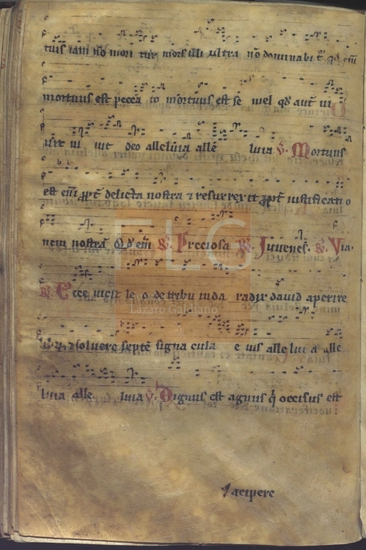 tuis iam nō mori tur mors illi ultra nō dominabit᷑ qd̄ em̄
mortuus est pecca to mortuus est se mel qd̄ aut̄ vi
vit vi vit deo alleluia alle luia ℣. Mortuus
est em̄ ꝓpt̄ delicta nostra ⁊ resurrexit ꝓpt̄ iustificati o
nem nostrā Qd̄ em̄ ℟. Preciosa ℟. Iuvenes. ℟. Via
℟. Ecce vicit le o de tribu iuda radix david aperire
⁊ solvere septē signa cula e ius alle lui a alle
luia alle luia ℣. Dignus est agnus q̄ occisus est
LG
Lázaro Galdiano
accipere